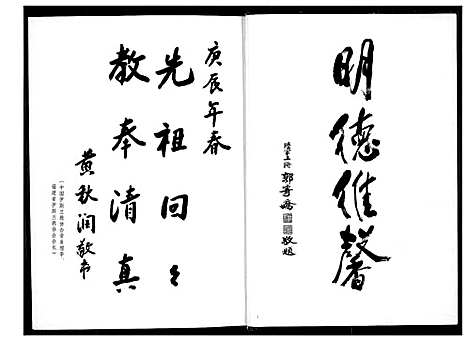 明德维馨
陆军上将 郭 敬题
庚辰年春
先祖回回
教奉清真
黄秋润敬书
(中国伊斯兰教协会常务理事、
福建省伊斯兰教协会会长)